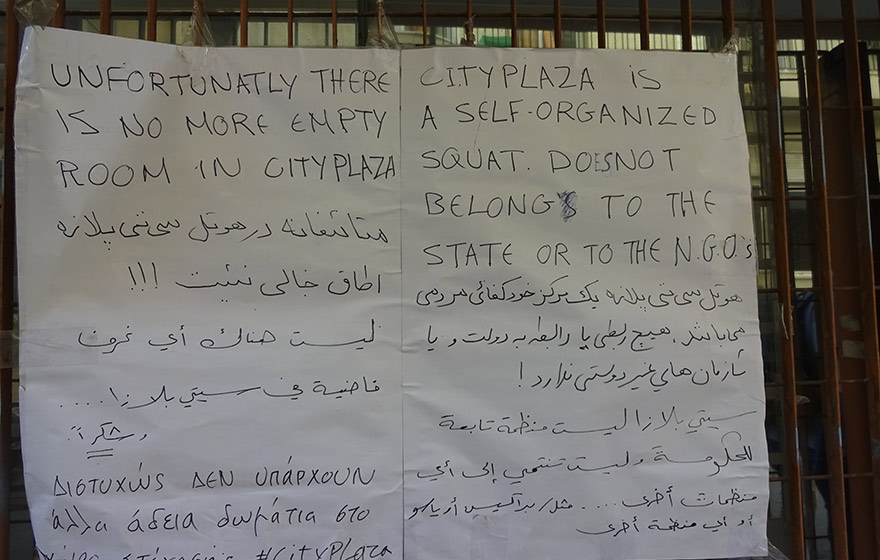 UNFORTUNATLY THERE
IS NO MORE EMPTY
ROOM IN CITYPLAZA
متائفانه در هوتل سی تی پلازه
اطاق خالی نیئت !!!
ليست هناك أي غرف
فاضية في سيتي بلازا....
وشكراً.
ΔΙΣΤΥΧΩΣ ΔΕΝ ΥΠΑΡΧΟΥΝ
άλλα άδεια δωμάτια στο
#CityPlaza
CITYPLAZA IS
A SELF-ORGANIZED
SQUAT. DOESNOT
BELONG TO THE
STATE OR TO THE N.G.O.'s
هوتل سی تی پلازه یک مرکز خود کفائی مردمی
می باشد، هیچ ربطی یا رابطه به دولت و یا
سازمان های غیر دولتی ندارد!
سيتي بلازا ليست منظمة تابعة
للحكومة وليست تنتمي إلى أي
منظمات أخرى.... مثل براكسيس أو ياسو
أو أي منظمة أخرى